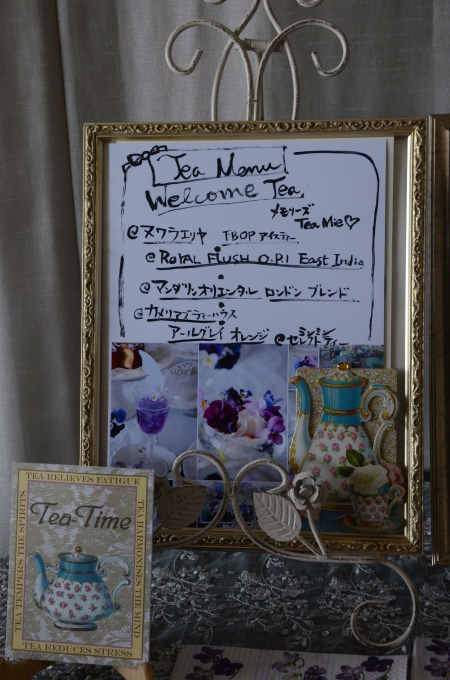 Tea Menu
Welcome Tea
メモリーズ
Tea Mie♡
@ヌワラエリヤ FBOP アイスティー
@ ROYAL FLUSH O.P.1 East India
@マンダリンオリエンタル ロンドン ブレンド
@カメリアズティーハウス
アールグレイ オレンジ @ミンミン
セレクトティー
TEA RELIEVES FATIGUE
TEA TEMPERS THE SPIRITS
Tea-Time
TEA HARMONISES THE MIND
TEA REDUCES STRESS